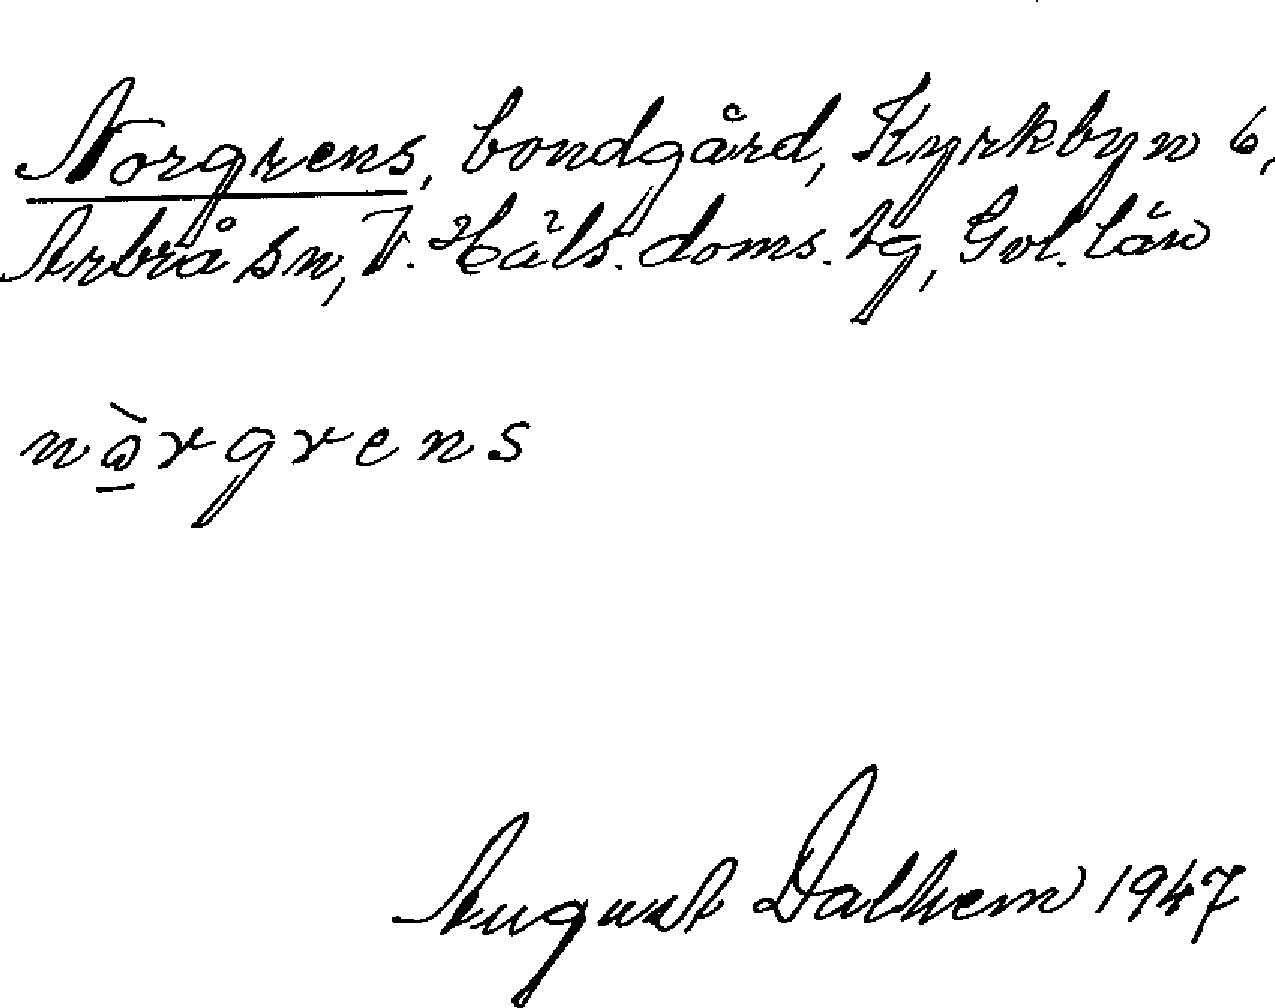 Norgrens, bondgård, Kyrkbyn 6,
Arbrå sn, V. Häls. doms. tg, Gvl. län
nò̱rgrens
August Dalhem 1947